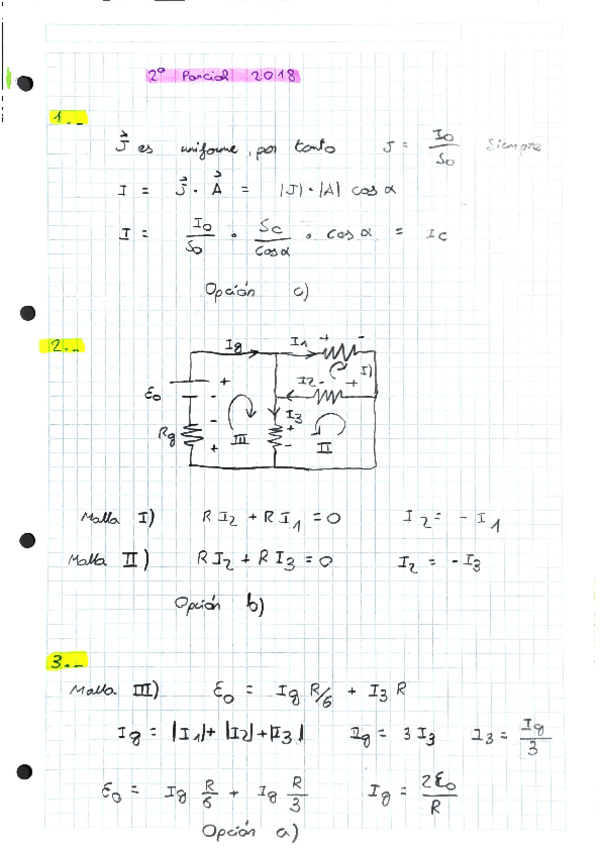 2º Parcial 2018
1.-
J⃗ es uniforme, por tanto J = I0/S0 Siempre
I = J⃗ · A⃗ = |J|·|A| cos α
I = I0/S0 · Sc/cos α · cos α = Ic
Opción c)
2.-
Ig I1 + -
I)
I2 - +
ε0 + -
I3
Rg - + III + - II
Malla I) R I2 + R I1 = 0 I2 = - I1
Malla II) R I2 + R I3 = 0 I2 = - I3
Opción b)
3.-
Malla III) ε0 = Ig R/6 + I3 R
Ig = |I1| + |I2| + |I3| Ig = 3 I3 I3 = Ig/3
ε0 = Ig R/6 + Ig R/3 Ig = 2ε0/R
Opción a)